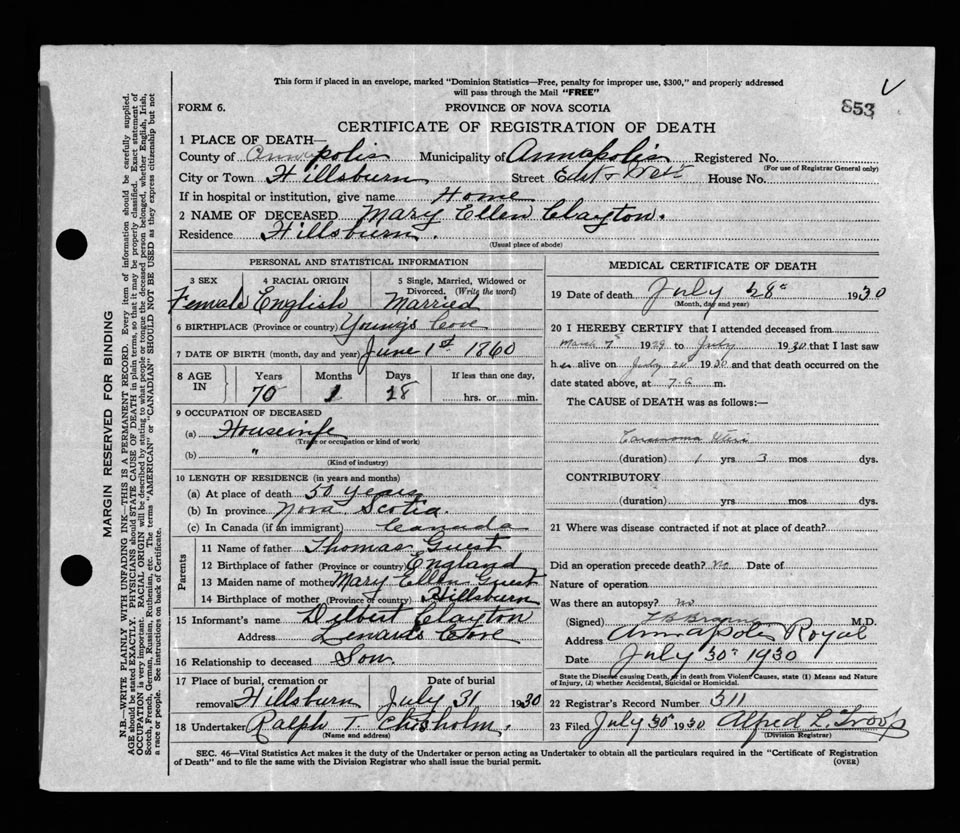 This form if placed in an envelope, marked "Dominion Statistics—Free, penalty for improper use, $300," and properly addressed
will pass through the Mail "FREE"
FORM 6.
PROVINCE OF NOVA SCOTIA
853
CERTIFICATE OF REGISTRATION OF DEATH
1 PLACE OF DEATH—
County of Annapolis Municipality of Annapolis Registered No.
(For use of Registrar General only)
City or Town Hillsburn Street House No.
If in hospital or institution, give name Home
2 NAME OF DECEASED Mary Ellen Clayton.
Residence Hillsburn.
(Usual place of abode)
PERSONAL AND STATISTICAL INFORMATION
3 SEX 4 RACIAL ORIGIN 5 Single, Married, Widowed or
Divorced. (Write the word)
Female English Married
6 BIRTHPLACE (Province or country) Young's Cove
7 DATE OF BIRTH (month, day and year) June 1st 1860
8 AGE IN Years Months Days If less than one day,
70 1 28 hrs. or min.
9 OCCUPATION OF DECEASED
(a) Housewife
(Trade or occupation or kind of work)
(b) "
(Kind of industry)
10 LENGTH OF RESIDENCE (in years and months)
(a) At place of death 50 years
(b) In province Nova Scotia.
(c) In Canada (if an immigrant) Canada
Parents
11 Name of father Thomas Guest
12 Birthplace of father (Province or country) England
13 Maiden name of mother Mary Ellen Guest
14 Birthplace of mother (Province or country) Hillsburn
15 Informant's name Delbert Clayton
Address Cove
16 Relationship to deceased Son.
17 Place of burial, cremation or Date of burial
removal Hillsburn July 31 1930
18 Undertaker Ralph T. Chisholm.
(Name and address)
MEDICAL CERTIFICATE OF DEATH
19 Date of death July 28th 1930
(Month, day and year)
20 I HEREBY CERTIFY that I attended deceased from
March 7th 1929 to July 1930 that I last saw
her alive on July 1930 and that death occurred on the
date stated above, at m.
The CAUSE of DEATH was as follows:—
Carcinoma Uteri
(duration) 1 yrs 3 mos dys.
CONTRIBUTORY
(duration) yrs mos dys.
21 Where was disease contracted if not at place of death?
Did an operation precede death? No Date of
Nature of operation
Was there an autopsy? no
(Signed) M.D.
Address Annapolis Royal
Date July 30th 1930
State the Disease causing Death, or in death from Violent Causes, state (1) Means and Nature
of Injury, (2) whether Accidental, Suicidal or Homicidal.
22 Registrar's Record Number 311
23 Filed July 30th 1930 Alfred L. Troop
(Division Registrar)
SEC. 46—Vital Statistics Act makes it the duty of the Undertaker or person acting as Undertaker to obtain all the particulars required in the "Certificate of Registration
of Death" and to file the same with the Division Registrar who shall issue the burial permit.
(OVER)
MARGIN RESERVED FOR BINDING
N.B.—WRITE PLAINLY WITH UNFADING INK—THIS IS A PERMANENT RECORD. Every item of information should be carefully supplied.
AGE should be stated EXACTLY. PHYSICIANS should STATE CAUSE OF DEATH in plain terms, so that it may be properly classified. Exact statement of
OCCUPATION is very important. RACIAL ORIGIN will be described by stating to what people or tongue the deceased person belonged, whether English, Irish,
Scotch, French, German, Russian, Ruthenian, etc. The terms "AMERICAN" or "CANADIAN" SHOULD NOT BE USED as they express citizenship but not
a race or people. See instructions on back of Certificate.